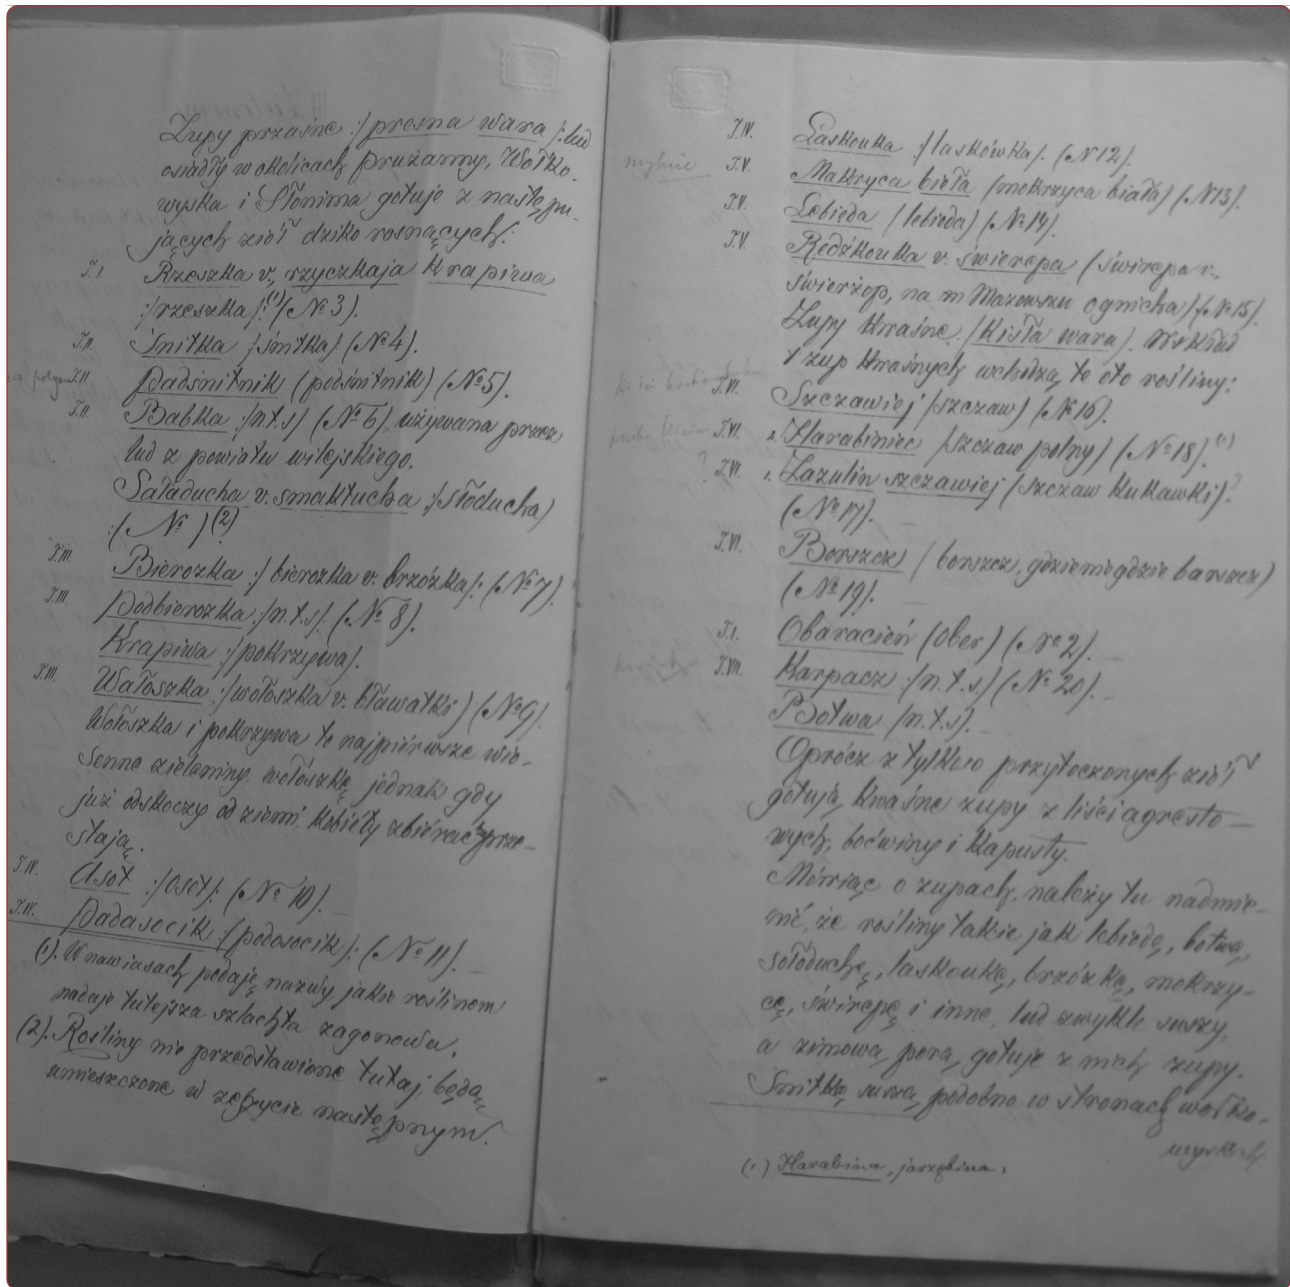 Zupy przaśne :/ presna wara /: lud
osiadły w okolicach Prużanny, Wołko-
wyska i Słonima gotuje z następu-
jących ziół dziko rosnących:
T.I Rzeszka v., rzyczkaja Krapiwa
:/rzeszka/: (1) (№ 3).
T.II. Śnitka /śnitka/ (№ 4).
T.II. Padśnitnik (podśnitnik) (№ 5).
T.II. Babka :/n.t.s/ (№ 6), używana przez
lud z powiatu wilejskiego.
Saładucha v. smaktucha :/słoducha)
:(№ ) (2)
T.III. Bierozka :/ bierozka v. brzózka/: (№ 7).
T.III Podbierozka :/n.t.s/. (№ 8).
Krapiwa :/pokrzywa/.
T.III. Wałoszka :/wołoszka v. bławatki) (№ 9).
Wołoszka i pokrzywa to najpiérwsze wio-
senne zieleniny, wołoszkę jednak gdy
już odskoczy od ziemi, kobiety zbiérać prze-
stają.
T.IV. Asot :/oset/: (№ 10).
T.IV. Padasocik :(podosocik/: (№ 11).
(1). W nawiasach podaję nazwy jakie roślinom
nadaje tutejsza szlachta zagonowa.
(2). Rośliny nie przedstawione tutaj, będą
umieszczone w zeszycie następnym.
T.IV. Łaskouka :/laskówka/. (№ 12).
mylnie T.V. Makryca bieła (mokrzyca biała) (№ 13).
T.V. Lebieda (lebioda) (№ 14).
T.V. Redźkouka v. świerepa (świrepa v.,
świerzop, na Mazowszu ognicha) (№ 15).
Zupy kwaśne /kisła wara/. W skład
zup kwaśnych wchodzą te oto rośliny:
T.VI. Szczawiej /szczaw) (№ 16).
T.VI. 2. Harabiniec /szczaw polny) (№ 18). (1)
? T.VI. 1. Zazulin szczawiej (szczaw kukawki)?
(№ 17).
T.VI. Borszcz / borszcz, gdzieniegdzie barszcz)
(№ 19).
T.I. Obaracień (Ober) (№ 2).
T.VII. Karpacz :/n.t.s.) (№ 20).
Botwa /n.t.s).
Oprócz z tylko przytoczonych ziół
gotują kwaśne zupy z liści agresto-
wych, boćwiny i kapusty.
Mówiąc o zupach, należy tu nadmie-
nić, że rośliny takie jak lebiodę, botwę,
sołoduchę, laskoukę, brzózkę, mokrzy-
cę, świrepę i inne, lud zwykle suszy,
a zimową porą gotuje z nich zupy.
Śnitkę suszą podobno w stronach wołko-
wyskich
(1) Harabina, jarzębina.